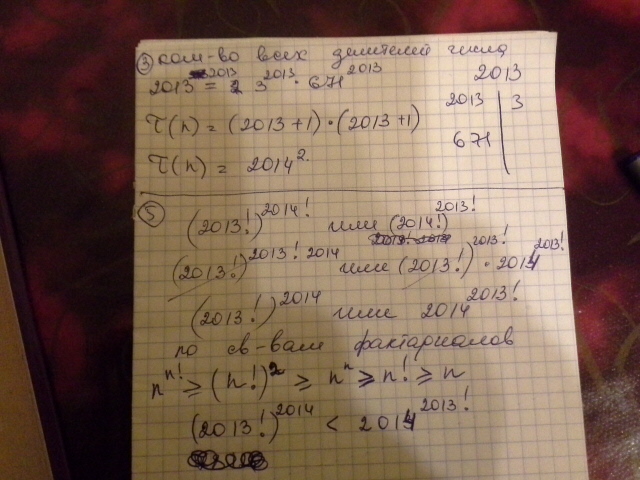 ③ кол-во всех делителей числа
2013^2013 = 3^2013 · 671^2013
2013
2013 | 3
671
τ(n) = (2013+1)·(2013+1)
τ(n) = 2014^2
⑤
(2013!)^2014! или (2014!)^2013!
(2013!)^2013! 2014 или (2013!)^2013! · 2014^2013!
(2013!)^2014 или 2014^2013!
по св-вам факториалов
n^n! ≥ (n!)^2 ≥ n^n ≥ n! ≥ n
(2013!)^2014 < 2014^2013!